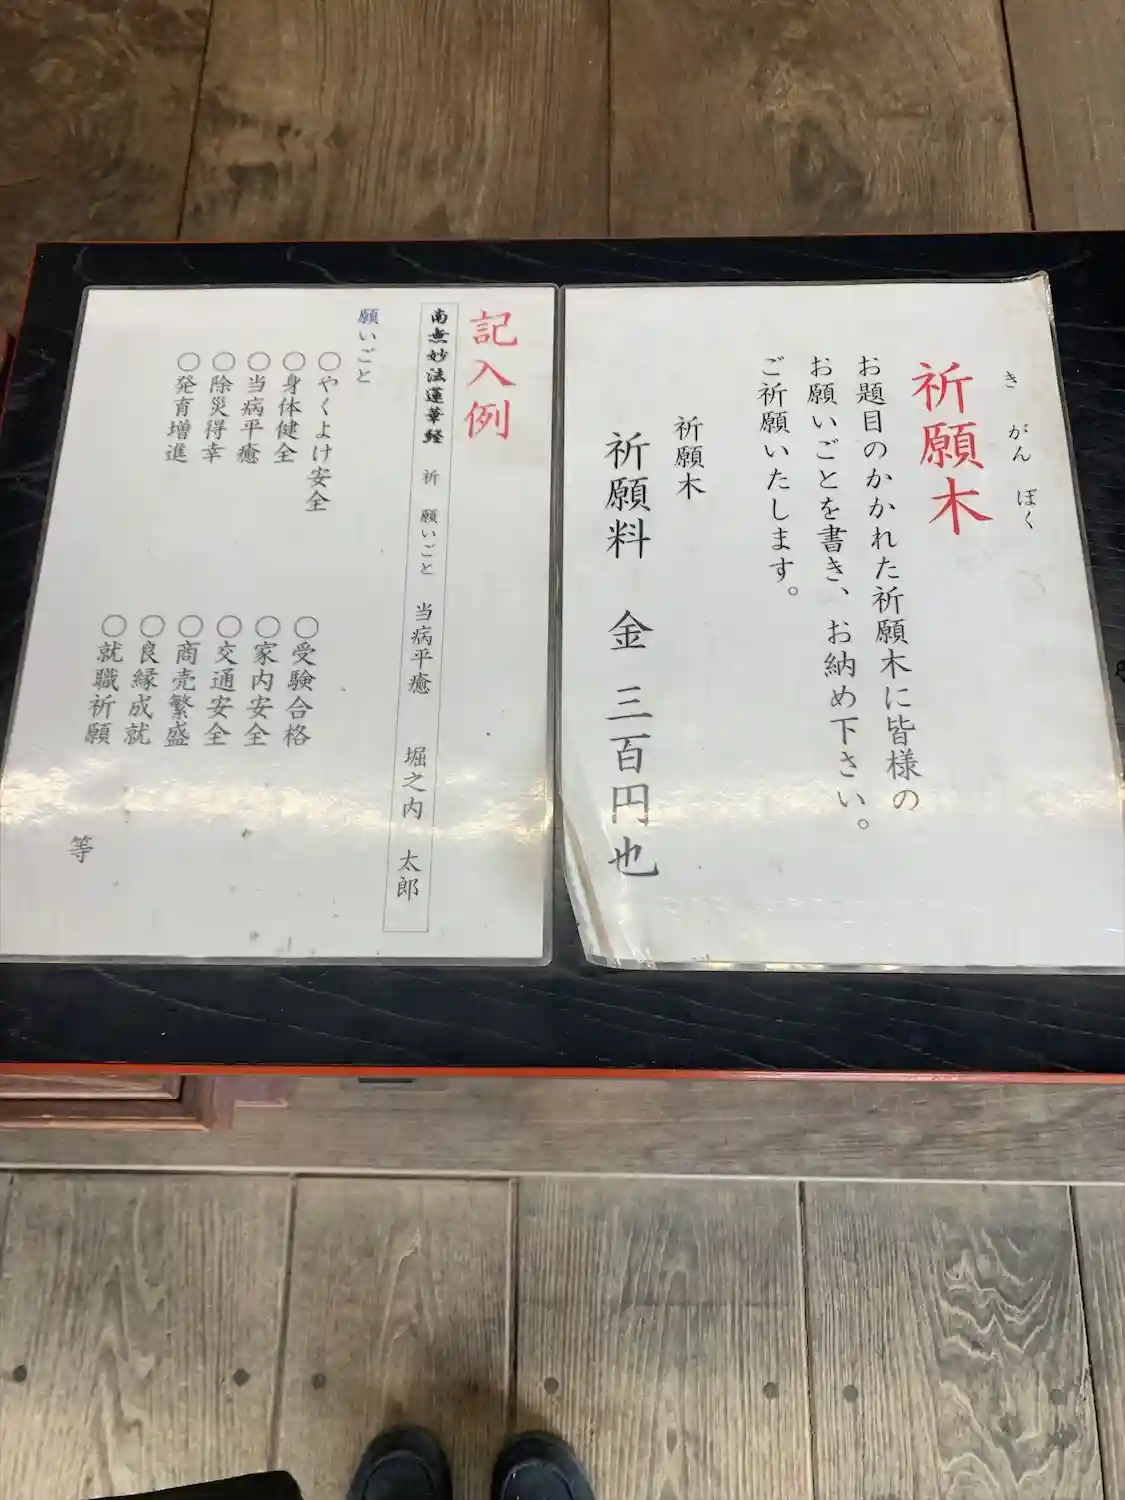 き がん ぼく
祈願木
お題目のかかれた祈願木に皆様の
お願いごとを書き、お納め下さい。
ご祈願いたします。
祈願木
祈願料 金 三百円也
記入例
南無妙法蓮華経 祈 願いごと 当病平癒 堀之内 太郎
願いごと
〇やくよけ安全
〇身体健全
〇当病平癒
〇除災得幸
〇発育増進
〇受験合格
〇家内安全
〇交通安全
〇商売繁盛
〇良縁成就
〇就職祈願
等